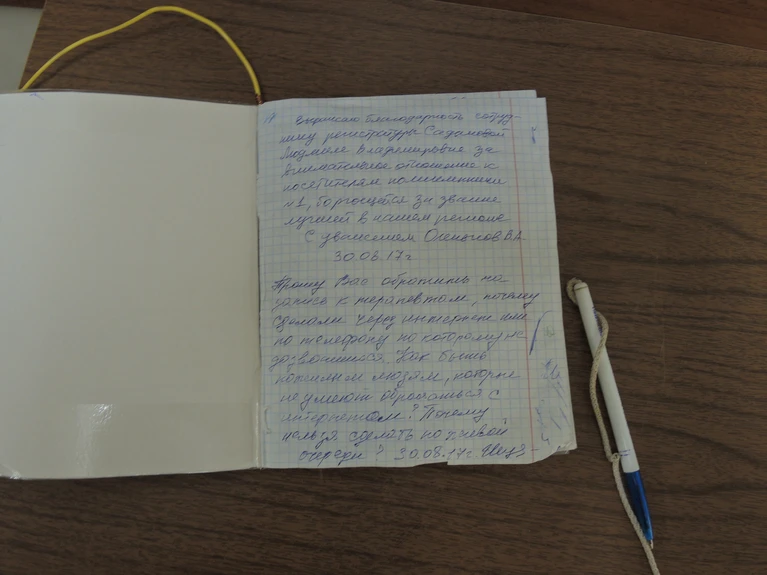 Выражаю благодарность сотруд-
нику регистратуры Садамовой
Людмиле Владимировне за
внимательное отношение к
посетителям поликлиники
№1, борющейся за звание
лучшей в нашем регионе
С уважением В.А.
30.08.17г.
Прошу Вас обратить на
запись к терапевтам, почему
сделали через интернет или
по телефону по которому не
дозвонишься. Как быть
пожилым людям, которые
не умеют обращаться с
интернетом? Почему
нельзя сделать по живой
очереди? 30.08.17г.